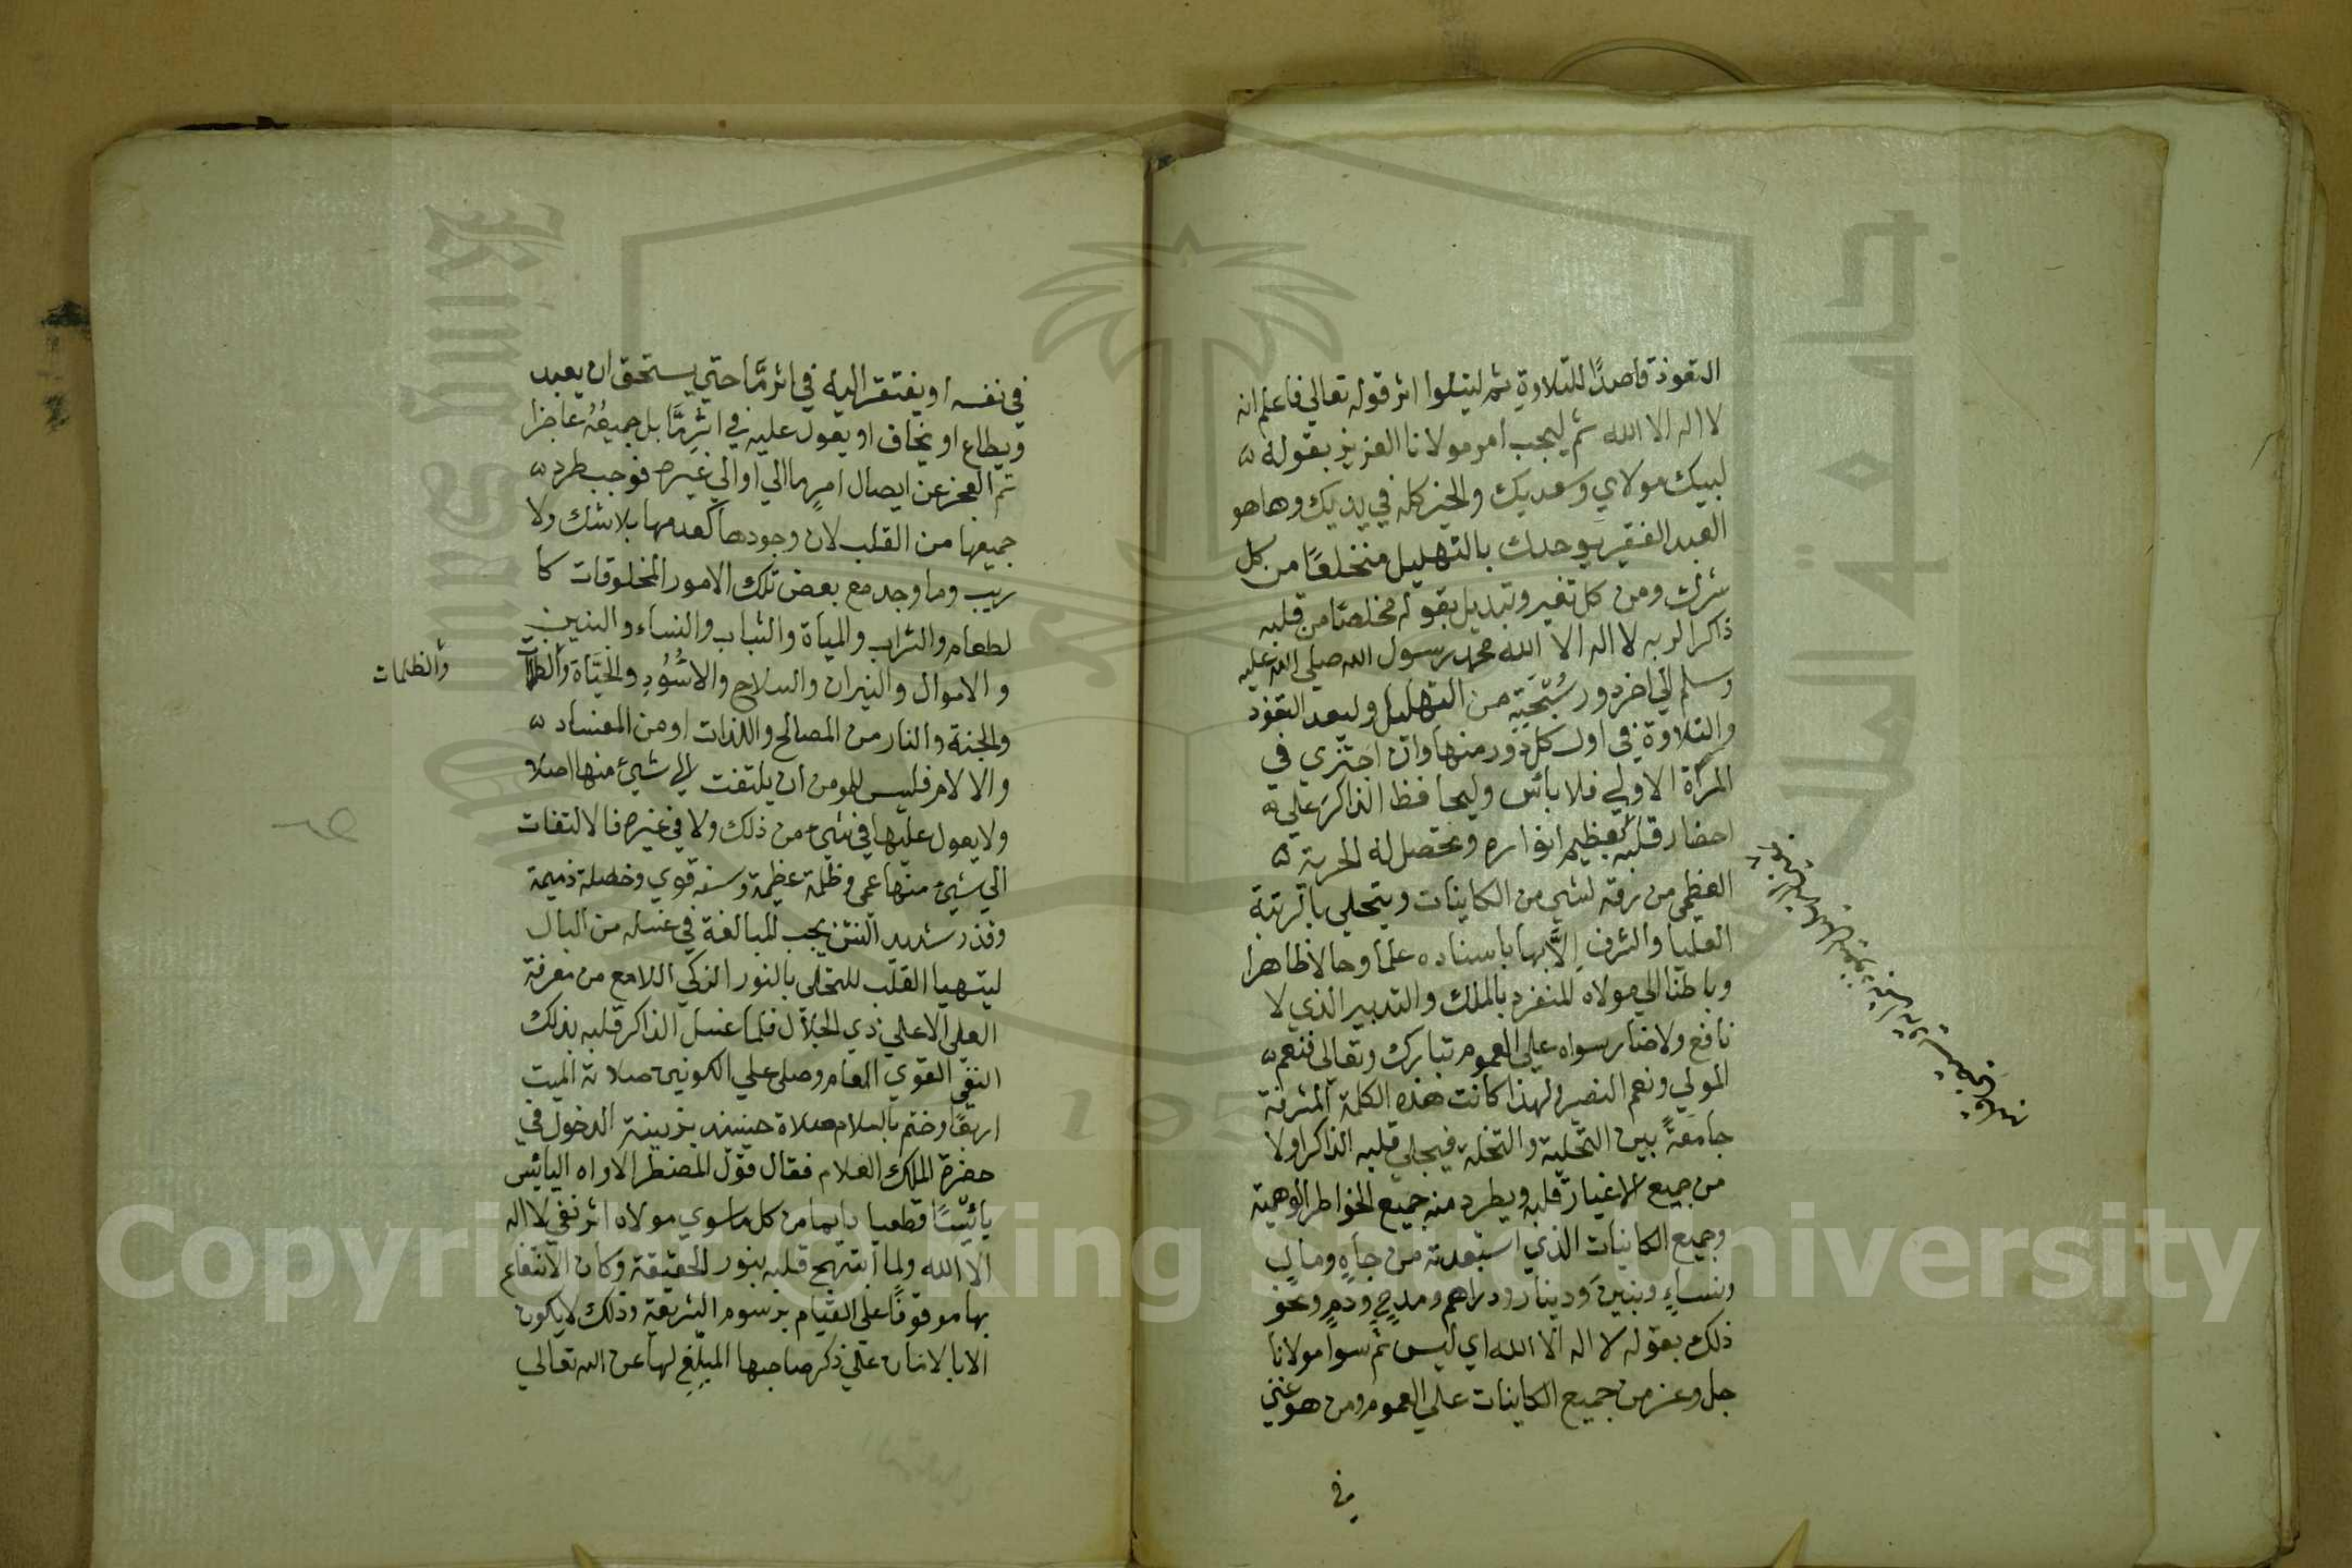 التعوذ قاصدًا للتلاوة ثم ليتلوا اثر قوله تعالي فاعلم انه
لا اله الا الله ثم ليجب امر مولانا العزيز بقوله
لبيك مولاي وسعديك والخير كله في يديك وها هو
العبد الفقير يوحدك بالتهليل منخلعًا من كل
شرك ومن كل تغير وتبديل بقوله مخلصًا من قلبه
ذاكرا لربه لا اله الا الله محمد رسول الله صلي الله عليه
وسلم الي اخر دور سُبْحَتِه من التهليل وليعد التعوذ
والتلاوة في اول كل دور منها وان اجتزي في
المرة الاولي فلا بائس وليحافظ الذاكر علي
احضار قلبه لعظيم انواره وتحصل له الحرية
العظمي من رقه لشي من الكاينات ويتحلي بالرتبة
العليا والشرف الابها باسناده علما وحالا ظاهرا
وباطنا الي مولاه المنفرد بالملك والتدبير الذي لا
نافع ولا ضار سواه علي العموم تبارك وتعالي فنعم
المولي ونعم النصير ولهذا كانت هذه الكلمة المشرفة
جامعةً بين التحلية والتخلية فيجلي قلبه الذاكر اولا
من جميع الاغيار قلبه ويطرد منه جميع الخواطر الوهمية
وجميع الكاينات الذي استبعدته من جاهٍ ومالٍ
ونساءٍ وبنين ودينار ودراهم ومدحٍ وذمٍ ونحو
ذلك بقوله لا اله الا الله اي ليس ثم سوا مولانا
جل وعز من جميع الكاينات علي العموم ومن هو غني
في
في نفسه او يفتقر اليه في اثر مَّا حتي يستحق ان يعبد
ويطاع او يخاف او يعول عليه في اثرٍ مَّا بل جميعُهُ عاجزا
ثم العجز عن ايصال امرٍ ما الي او الي غيره فوجب طرد
جميعها من القلب لان وجودها كعدمها بلا شك ولا
ريب وما وجد مع بعض تلك الامور المخلوقات كا
لطعام والشراب والمياة والثياب والنساء والبنين
والاموال والنيران والسلاح والاسُودِ والحيَاة والظلا
والظلمات
والجنة والنار من المصالح واللذات او من المفساد
والالام فليس للمومن ان يلتفت الي شيئ منها اصلا
ولا يعول عليها في شيء من ذلك ولا في غيره فالالتفات
الي شيء منها عمي وظلمة عظيمة وسفه قوي وخصلة ذميمة
وقذر شديد النتن يجب المبالغة في غسله من البال
ليتهيا القلب للتحلي بالنور الزكي اللامع من معرفة
العلي الاعلي ذي الجلال فلما غسل الذاكر قلبه بذلك
النفي القوي العام وصلي علي الكونين صلاة الميت
اربعًا وختم بالسلام صلاة حينئذ يزيينة الدخول في
حضرة الملك العلام فقال قول المضطر الاواه اليائيس
يائيسًا قطعيا دايما من كل ما سوي مولاه اثر نفي لا اله
الا الله ولما ابتهج قلبه بنور الحقيقة وكان الانتفاع
بها موقوفًا علي القيام برسوم الشريعة وذلك لا يكون
الا بالادمان علي ذكر صاحبها المبلِّغِ لها عن الله تعالي
Copyright © King Saud University
King Saud
جامعة الملك
195